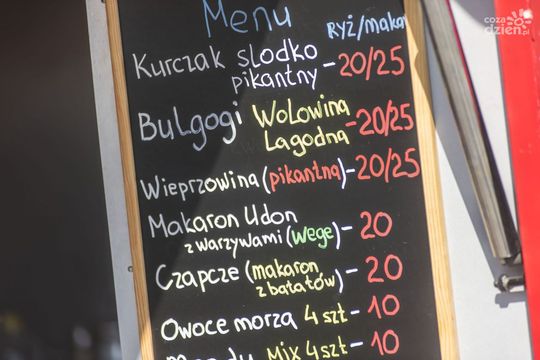 Menu
Ryż/maka
Kurczak słodko
pikantny - 20/25
Bulgogi Wołowina
Łagodna - 20/25
Wieprzowina (pikantna) - 20/25
Makaron Udon
z warzywami (wege) - 20
Czapcze (makaron
z batatów) - 20
Owoce morza 4 szt - 10
Mix 4 szt - 10
coza
dzień.pl